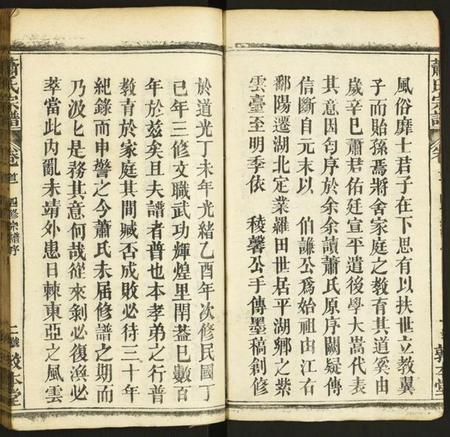 蕭氏宗譜
風俗靡士君子在下思有以扶世立教翼
子而貽孫焉將舍家庭之教育其道奚由
歲辛巳蕭君佑廷宣平遺後學大嵩代表
其意因勻序於余余讀蕭氏原序闕疑傳
信斷自元末以 伯謙公爲始祖由江右
鄱陽遷湖北定業羅田世居平湖鄉之紫
雲臺至明季依 稜馨公手傳墨稿創修
於道光丁未年光緒乙酉年次修民國丁
巳年三修文職武功輝煌里閈葢已數百
年於兹矣且夫譜者普也本孝弟之行普
教育於家庭其間臧否成敗必待三十年
紀錄而申警之今蕭氏未屆修譜之期而
乃汲匕是務其意何哉從來剝必復渙必
萃當此內亂未靖外患日棘東亞之風雲
蕭氏宗譜
卷首
四修宗譜序
二
敦本堂